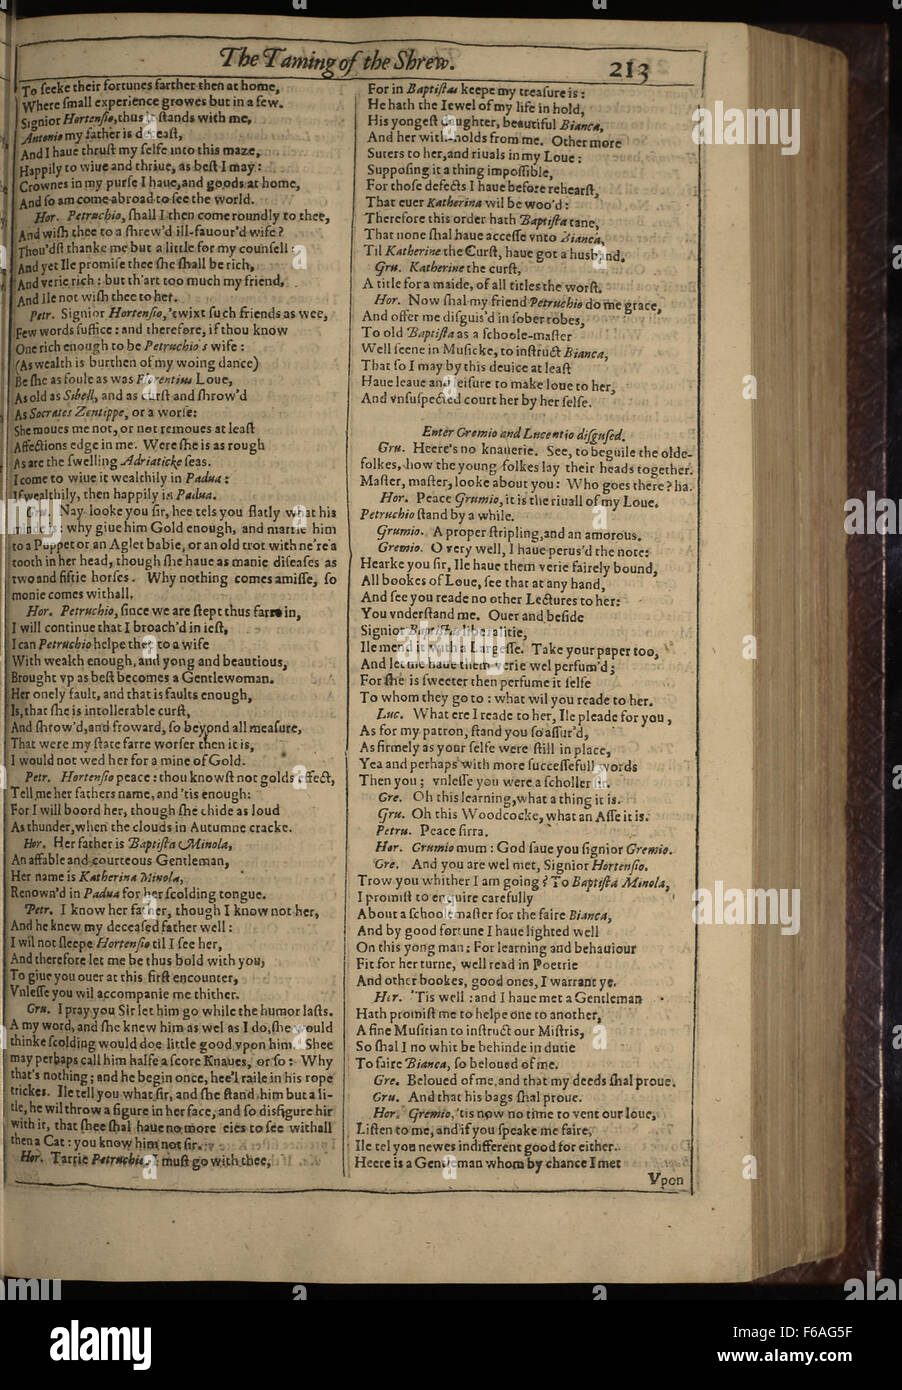 The Taming of the Shrew.
213
To ſeeke their fortunes farther then at home,
Where ſmall experience growes but in a few.
Signior Hortenſio, thus it ſtands with me,
Antonio my father is deceaſt,
And I haue thruſt my ſelfe into this maze,
Happily to wiue and thriue, as beſt I may:
Crownes in my purſe I haue, and goods at home,
And ſo am come abroad to ſee the world.
Hor. Petruchio, ſhall I then come roundly to thee,
And wiſh thee to a ſhrew'd ill-fauour'd wife?
Thou'dſt thanke me but a little for my counſell:
And yet Ile promiſe thee ſhe ſhall be rich,
And verie rich: but th'art too much my friend,
And Ile not wiſh thee to her.
Petr. Signior Hortenſio, 'twixt ſuch friends as wee,
Few words ſuffice: and therefore, if thou know
One rich enough to be Petruchio's wife:
(As wealth is burthen of my woing dance)
Be ſhe as foule as was Florentius Loue,
As old as Sibell, and as curſt and ſhrow'd
As Socrates Zentippe, or a worſe:
She moues me not, or not remoues at leaſt
Affections edge in me. Were ſhe is as rough
As are the ſwelling Adriaticke ſeas.
I come to wiue it wealthily in Padua:
If wealthily, then happily in Padua.
Gru. Nay looke you ſir, hee tels you flatly what his
minde is: why giue him Gold enough, and marrie him
to a Puppet or an Aglet babie, or an old trot with ne're a
tooth in her head, though ſhe haue as manie diſeaſes as
two and fiftie horſes. Why nothing comes amiſſe, ſo
monie comes withall.
Hor. Petruchio, ſince we are ſtept thus farre in,
I will continue that I broach'd in ieſt,
I can Petruchio helpe thee to a wife
With wealth enough, and yong and beautious,
Brought vp as beſt becomes a Gentlewoman.
Her onely fault, and that is faults enough,
Is, that ſhe is intollerable curſt,
And ſhrow'd, and froward, ſo beyond all meaſure,
That were my ſtate farre worſer then it is,
I would not wed her for a mine of Gold.
Petr. Hortenſio peace: thou knowſt not golds effect,
Tell me her fathers name, and 'tis enough:
For I will boord her, though ſhe chide as loud
As thunder, when the clouds in Autumne cracke.
Hor. Her father is Baptiſta Minola,
An affable and courteous Gentleman,
Her name is Katherina Minola,
Renown'd in Padua for her ſcolding tongue.
Petr. I know her father, though I know not her,
And he knew my deceaſed father well:
I wil not ſleepe Hortenſio til I ſee her,
And therefore let me be thus bold with you,
To giue you ouer at this firſt encounter,
Vnleſſe you wil accompanie me thither.
Gru. I pray you Sir let him go while the humor laſts.
A my word, and ſhe knew him as wel as I do, ſhe would
thinke ſcolding would doe little good vpon him. Shee
may perhaps call him halfe a ſcore Knaues, or ſo: Why
that's nothing; and he begin once, hee'l raile in his rope
trickes. Ile tell you what ſir, and ſhe ſtand him but a li-
tle, he wil throw a figure in her face, and ſo disfigure hir
with it, that ſhee ſhal haue no more eies to ſee withall
then a Cat: you know him not ſir.
Hor. Tarrie Petruchio, I muſt go with thee,
For in Baptiſtas keepe my treaſure is:
He hath the Iewel of my life in hold,
His yongeſt daughter, beautiful Bianca,
And her with-holds from me. Other more
Suters to her, and riuals in my Loue:
Suppoſing it a thing impoſſible,
For thoſe defects I haue before rehearſt,
That euer Katherina wil be woo'd:
Therefore this order hath Baptiſta tane,
That none ſhal haue acceſſe vnto Bianca,
Til Katherine the Curſt, haue got a husband.
Gru. Katherine the curſt,
A title for a maide, of all titles the worſt.
Hor. Now ſhal my friend Petruchio do me grace,
And offer me diſguis'd in ſober robes,
To old Baptiſta as a ſchoole-maſter
Well ſeene in Muſicke, to inſtruct Bianca,
That ſo I may by this deuice at leaſt
Haue leaue and leiſure to make loue to her,
And vnſuſpected court her by her ſelfe.
Enter Gremio and Lucentio diſguſed.
Gru. Heere's no knauerie. See, to beguile the olde-
folkes, how the young folkes lay their heads together.
Maſter, maſter, looke about you: Who goes there? ha.
Hor. Peace Grumio, it is the riuall of my Loue.
Petruchio ſtand by a while.
Grumio. A proper ſtripling, and an amorous.
Gremio. O very well, I haue perus'd the note:
Hearke you ſir, Ile haue them verie fairely bound,
All bookes of Loue, ſee that at any hand,
And ſee you reade no other Lectures to her:
You vnderſtand me. Ouer and beſide
Signior Baptiſtas liberalitie,
Ile mend it with a Largeſſe. Take your paper too,
And let me haue them verie wel perfum'd;
For ſhe is ſweeter then perfume it ſelfe
To whom they go to: what wil you reade to her.
Luc. What ere I reade to her, Ile pleade for you,
As for my patron, ſtand you ſo aſſur'd,
As firmely as your ſelfe were ſtill in place,
Yea and perhaps with more ſucceſſefull words
Then you; vnleſſe you were a ſcholler ſir.
Gre. Oh this learning, what a thing it is.
Gru. Oh this Woodcocke, what an Aſſe it is.
Petru. Peace ſirra.
Hor. Grumio mum: God ſaue you ſignior Gremio.
Gre. And you are wel met, Signior Hortenſio.
Trow you whither I am going? To Baptiſta Minola,
I promiſt to enquire carefully
About a ſchoolemaſter for the faire Bianca,
And by good fortune I haue lighted well
On this yong man: For learning and behauiour
Fit for her turne, well read in Poetrie
And other bookes, good ones, I warrant ye.
Hor. 'Tis well: and I haue met a Gentleman
Hath promiſt me to helpe one to another,
A fine Muſitian to inſtruct our Miſtris,
So ſhal I no whit be behinde in dutie
To faire Bianca, ſo beloued of me.
Gre. Beloued of me, and that my deeds ſhal proue.
Gru. And that his bags ſhal proue.
Hor. Gremio, 'tis now no time to vent our loue,
Liſten to me, and if you ſpeake me faire,
Ile tel you newes indifferent good for either.
Heere is a Gentleman whom by chance I met
Vpon
alamy
alamy
Image ID: F6AG5F
www.alamy.com